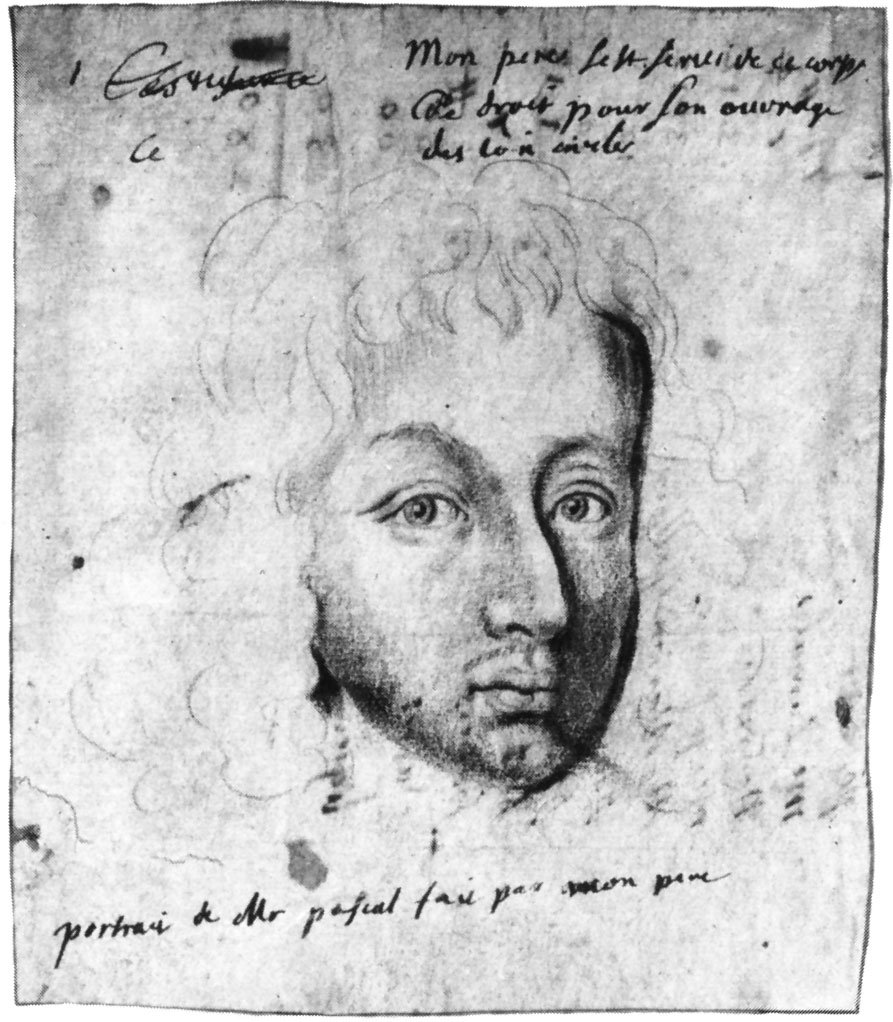 Mon pere sest servi de ce corps
De droit pour son ouvrage
des loix civiles
1
Ce
portrait de Mr pascal fait par mon pere